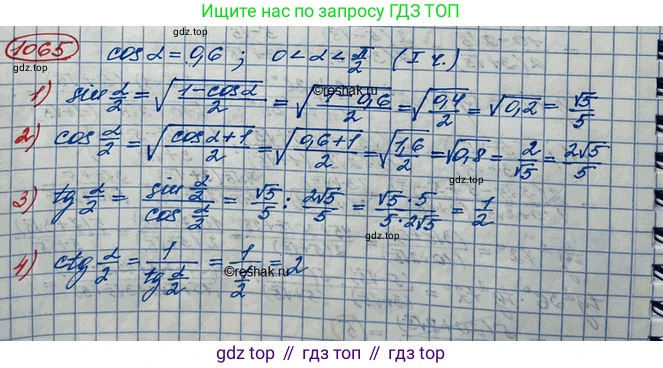 Ищите нас по запросу ГДЗ ТОП
1065 cos α = 0,6 ; 0 < α < π/2 (I ч.)
1) sin α/2 = √((1-cosα)/2) = √((1-0,6)/2) = √(0,4/2) = √0,2 = √5/5
2) cos α/2 = √((cosα+1)/2) = √((0,6+1)/2) = √(1,6/2) = √0,8 = 2/√5 = 2√5/5
gdz.top
3) tg α/2 = (sin α/2)/(cos α/2) = √5/5 : 2√5/5 = (√5·5)/(5·2√5) = 1/2
gdz.top
4) ctg α/2 = 1/(tg α/2) = 1/(1/2) = 2
©reshak.ru ©reshak.ru
gdz top // гдз топ // gdz.top